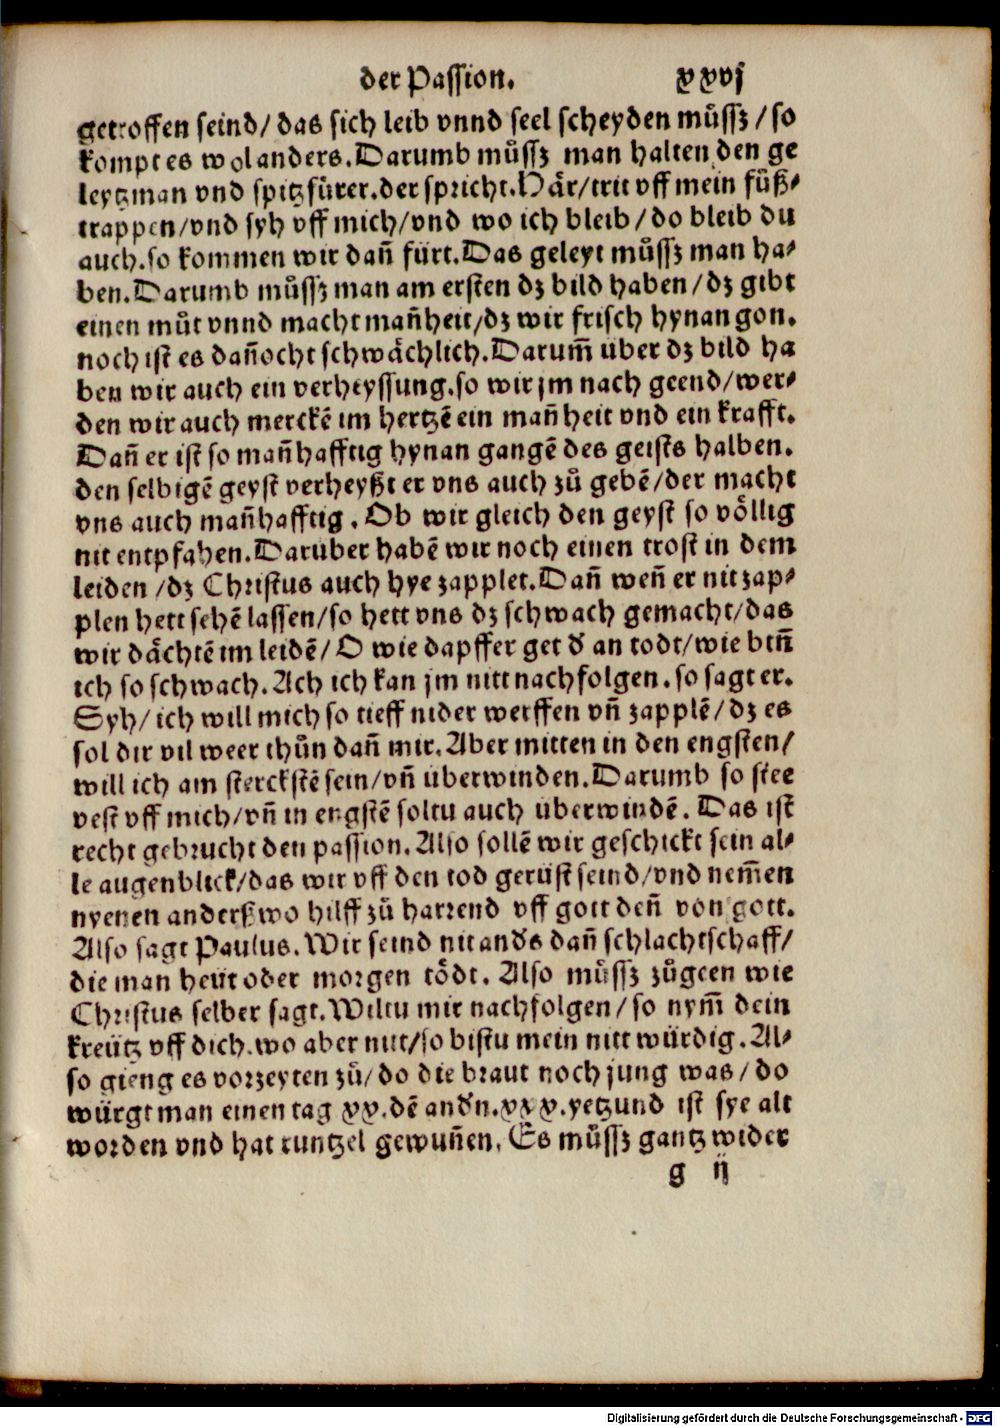 der Passion. xxvj
getroffen seind/ das sich leib vnnd seel scheyden můssz/so
kompt es wol anders. Darumb můssz man halten den ge
leytzman vnd spitzfürer. der spricht. Här/trit vff mein fůß⸗
trappen/vnd syh vff mich/vnd wo ich bleib/do bleib du
auch. so kommen wir dañ fürt. Das geleyt můssz man ha⸗
ben. Darumb můssz man am ersten dz bild haben/dz gibt
einen můt vnnd macht mañheit/dz wir frisch hynan gon.
noch ist es dañocht schwåchlich. Darum̃ über dz bild ha
ben wir auch ein verheyssung. so wir jm nach geend/wer⸗
den wir auch merckẽ im hertzẽ ein mañheit vnd ein krafft.
Dañ er ist so mañhafftig hynan gangẽ des geists halben.
den selbigẽ geyst verheyßt er vns auch zů gebẽ/der macht
vns auch mañhafftig. Ob wir gleich den geyst so vőllig
nit entpfahen. Darüber habẽ wir noch einen trost in dem
leiden /dz Christus auch hye zapplet. Dañ weñ er nit zap⸗
plen hett sehẽ lassen/so hett vns dz schwach gemacht/das
wir dåchtẽ im leidẽ/O wie dapffer get d̕ an todt/wie biñ
ich so schwach. Ach ich kan jm nitt nachfolgen. so sagt er.
Syh/ ich will mich so tieff nider werffen vñ zapplẽ/dz es
sol dir vil weer thůn dañ mir. Aber mitten in den engsten/
will ich am sterckstẽ sein/vñ überwinden. Darumb so stee
vest vff mich/vñ in engstẽ soltu auch überwindẽ. Das ist
recht gebrucht den passion. Also sollẽ wir geschickt sein al⸗
le augenblick/das wir vff den tod gerüst seind/vnd nem̃en
nyenen anderßwo hilff zů harrend vff gott deñ von gott.
Also sagt Paulus. Wir seind nit and̕s dañ schlachtschaff/
die man heüt oder morgen tődt. Also můssz zůgeen wie
Christus selber sagt. Wiltu mir nachfolgen/ so nym̃ dein
kreütz vff dich. wo aber nitt/so bistu mein nitt würdig. Al⸗
so gieng es vorzeyten zů/ do die braut noch jung was/do
würgt man einen tag xx. dẽ and̕n. xxx. yetzund ist sye alt
worden vnd hat runtzel gewuñen. Es můssz gantz wider
g ij
Digitalisierung gefördert durch die Deutsche Forschungsgemeinschaft - DFG